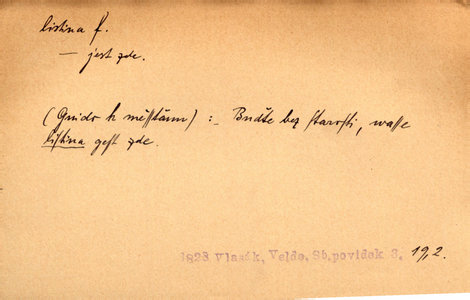 listina f.
— jest zde.
(Guido k měſſtěnům) : – Buďte bez ſtaroſti, waſſe
liſtina geſt zde.
1823 Vlasák, Velde, Sb.povídek 3, 19,2.